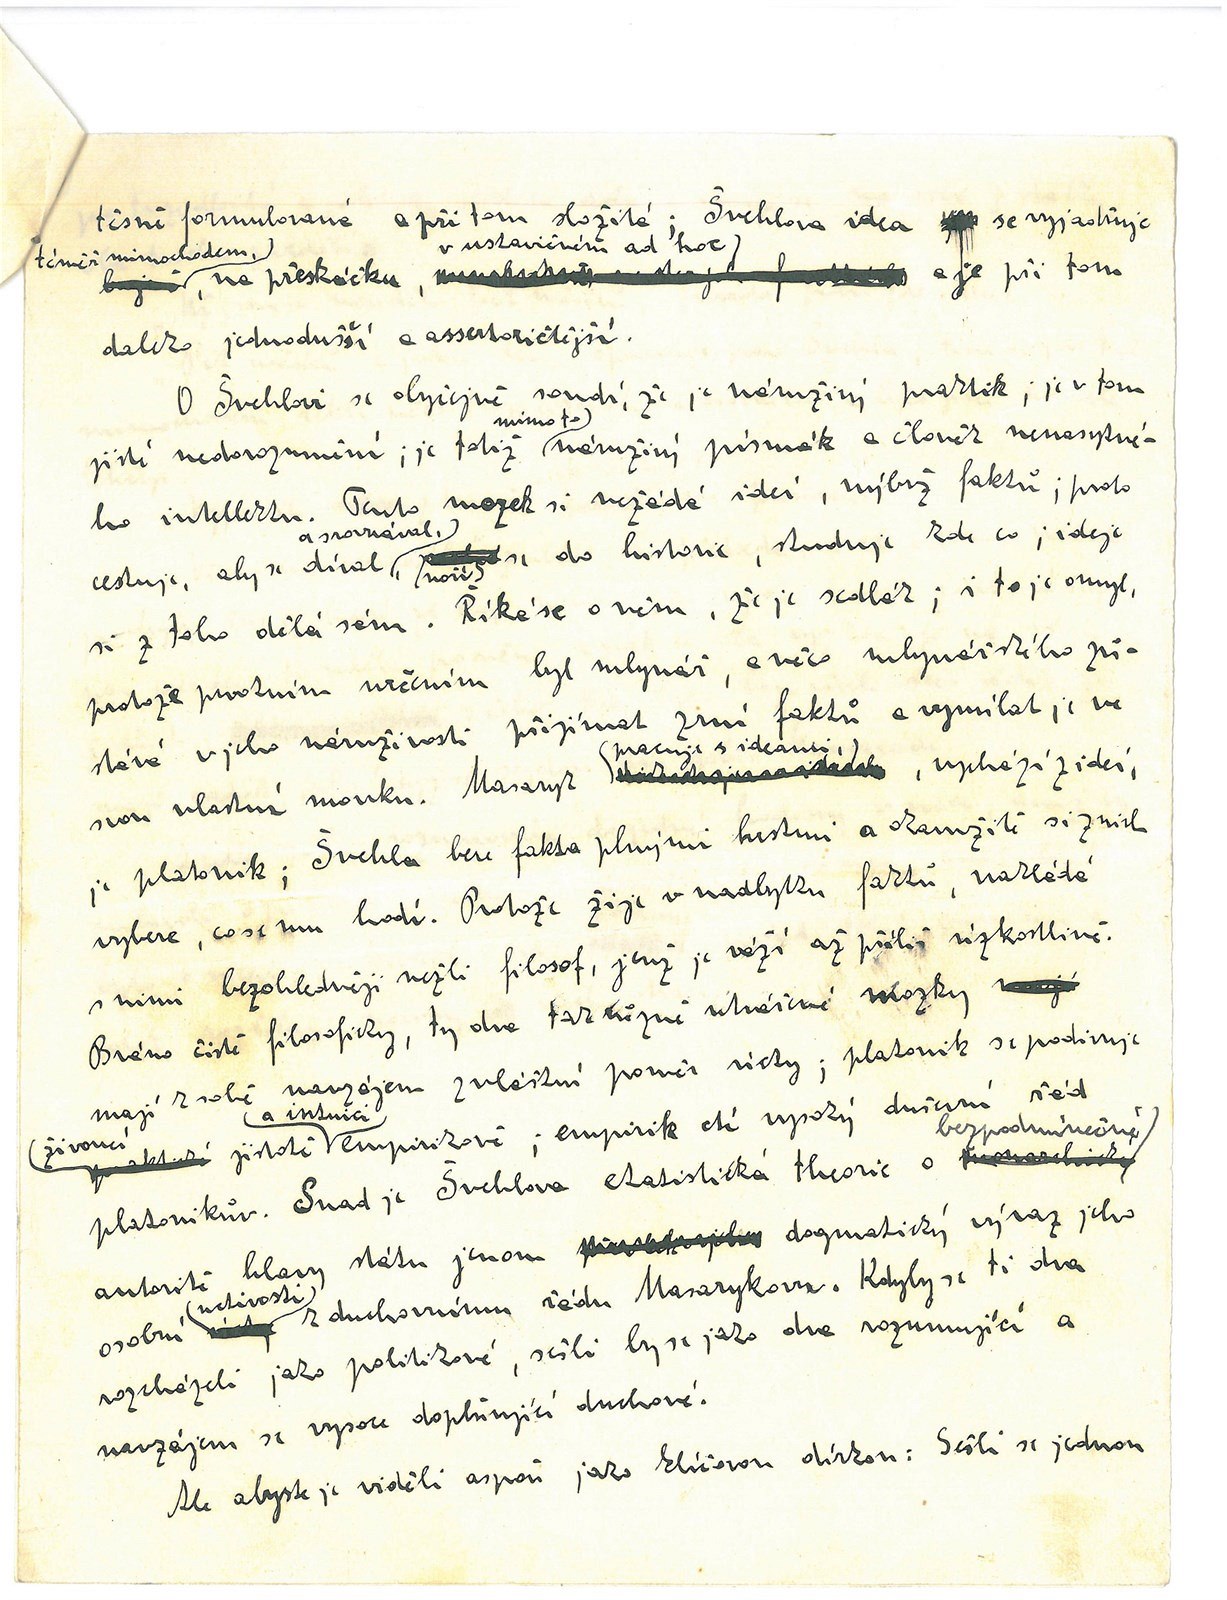 těsně formulované a při tom složité; Švehlova idea se vyjadřuje
téměř mimochodem, v ustavičném ad hoc
, na přeskáčku, a je při tom
daleko jednodušší a assertoričtější.
O Švehlovi se obyčejně soudí, že je náruživý praktik; je v tom
mimoto
jisté nedorozumění; je totiž náruživý písmák a člověk nenasytné-
ho intellektu. Tento mozek si nežádá ideí, nýbrž faktů; proto
a srovnával,
cestuje, aby se díval, se do historie, studuje kde co; ideje
noří
si z toho dělá sám. Říká se o něm, že je sedlák; i to je omyl,
protože prvotním určením byl mlynář, a něco mlynářského zů-
stává v jeho náruživosti přijímat zrní faktů a vymílat je ve
pracuje s ideami,
svou vlastní mouku. Masaryk , vychází z ideí,
je platonik; Švehla bere fakta plnými hrstmi a okamžitě si z nich
vybere, co se mu hodí. Protože žije v nadbytku faktů, nakládá
s nimi bezohledněji nežli filosof, jenž je váží až příliš úzkostlivě.
Bráno čistě filosoficky, ty dva tak různě utvářené mozky
mají k sobě navzájem zvláštní poměr úcty; platonik se podivuje
živoucí a intuici
jistotě empirikově; empirik ctí vysoký duševní řád
bezpodmínečné
platonikův. Snad je Švehlova etatistická theorie o
autoritě hlavy státu jenom dogmatický výraz jeho
uctivosti
osobní k duchovnímu řádu Masarykovu. Kdyby se ti dva
rozcházeli jako politikové, sešli by se jako dva rozumující a
navzájem se vysoce doplňující duchové.
Ale abyste je viděli aspoň jako klíčovou dírkou: Sešli se jednou